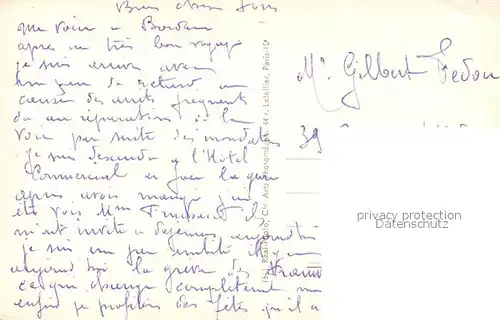 Bien chers tous
me voici à Bordeaux
après un très bon voyage
je suis arrivé avec
un peu de retard
cause des arrêts fréquents
du aux réparations de la
voie par suite des inondations
je suis descendu à l'Hôtel
Commercial en face la gare
après avoir mangé j'ai
été voir Mme
m'ont invité à déjeuner aujourd'hui
je suis un peu embêté
aujourd'hui la grève des Trams
ce qui dérange complètement
enfin je profiterai des fêtes qu'il y a
Mr Gilbert Fedou
39
privacy protection
Datenschutz
Réalisation Cie Arts Photomécaniques, Letellier, Paris-15e